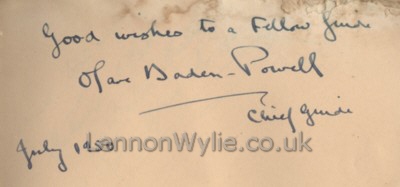 Good wishes to a Fellow Guide
Olave Baden-Powell
Chief Guide
July
LennonWylie.co.uk